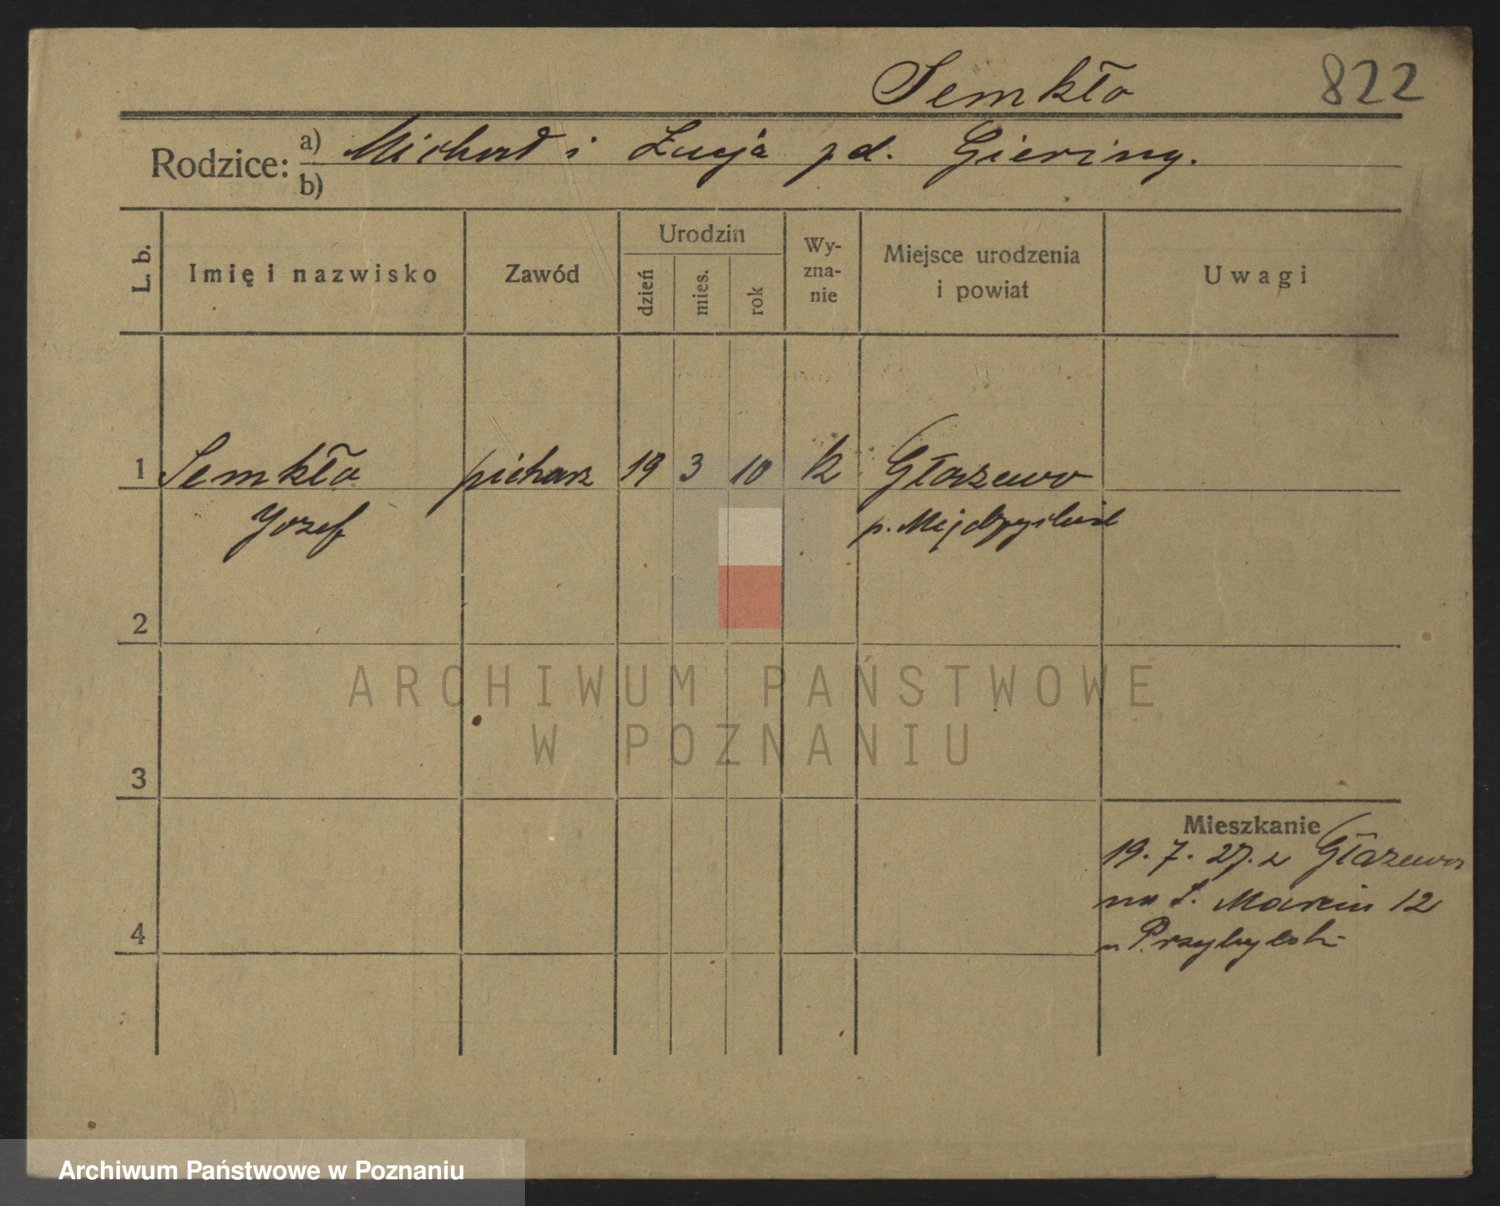 Semkło 822
Rodzice: a) Michał i Łucja pd. Giering.
b)
L. b. Imię i nazwisko Zawód Urodzin dzień mies. rok Wyznanie Miejsce urodzenia i powiat Uwagi
1 Semkło piekarz 19 3 10 k Głażewo
Jozef p. Międzychód
2
3
4
Mieszkanie
19. 7. 27. z Głażewa
na S. Marcin 12
u Przybylski
ARCHIWUM PAŃSTWOWE
W POZNANIU
Archiwum Państwowe w Poznaniu